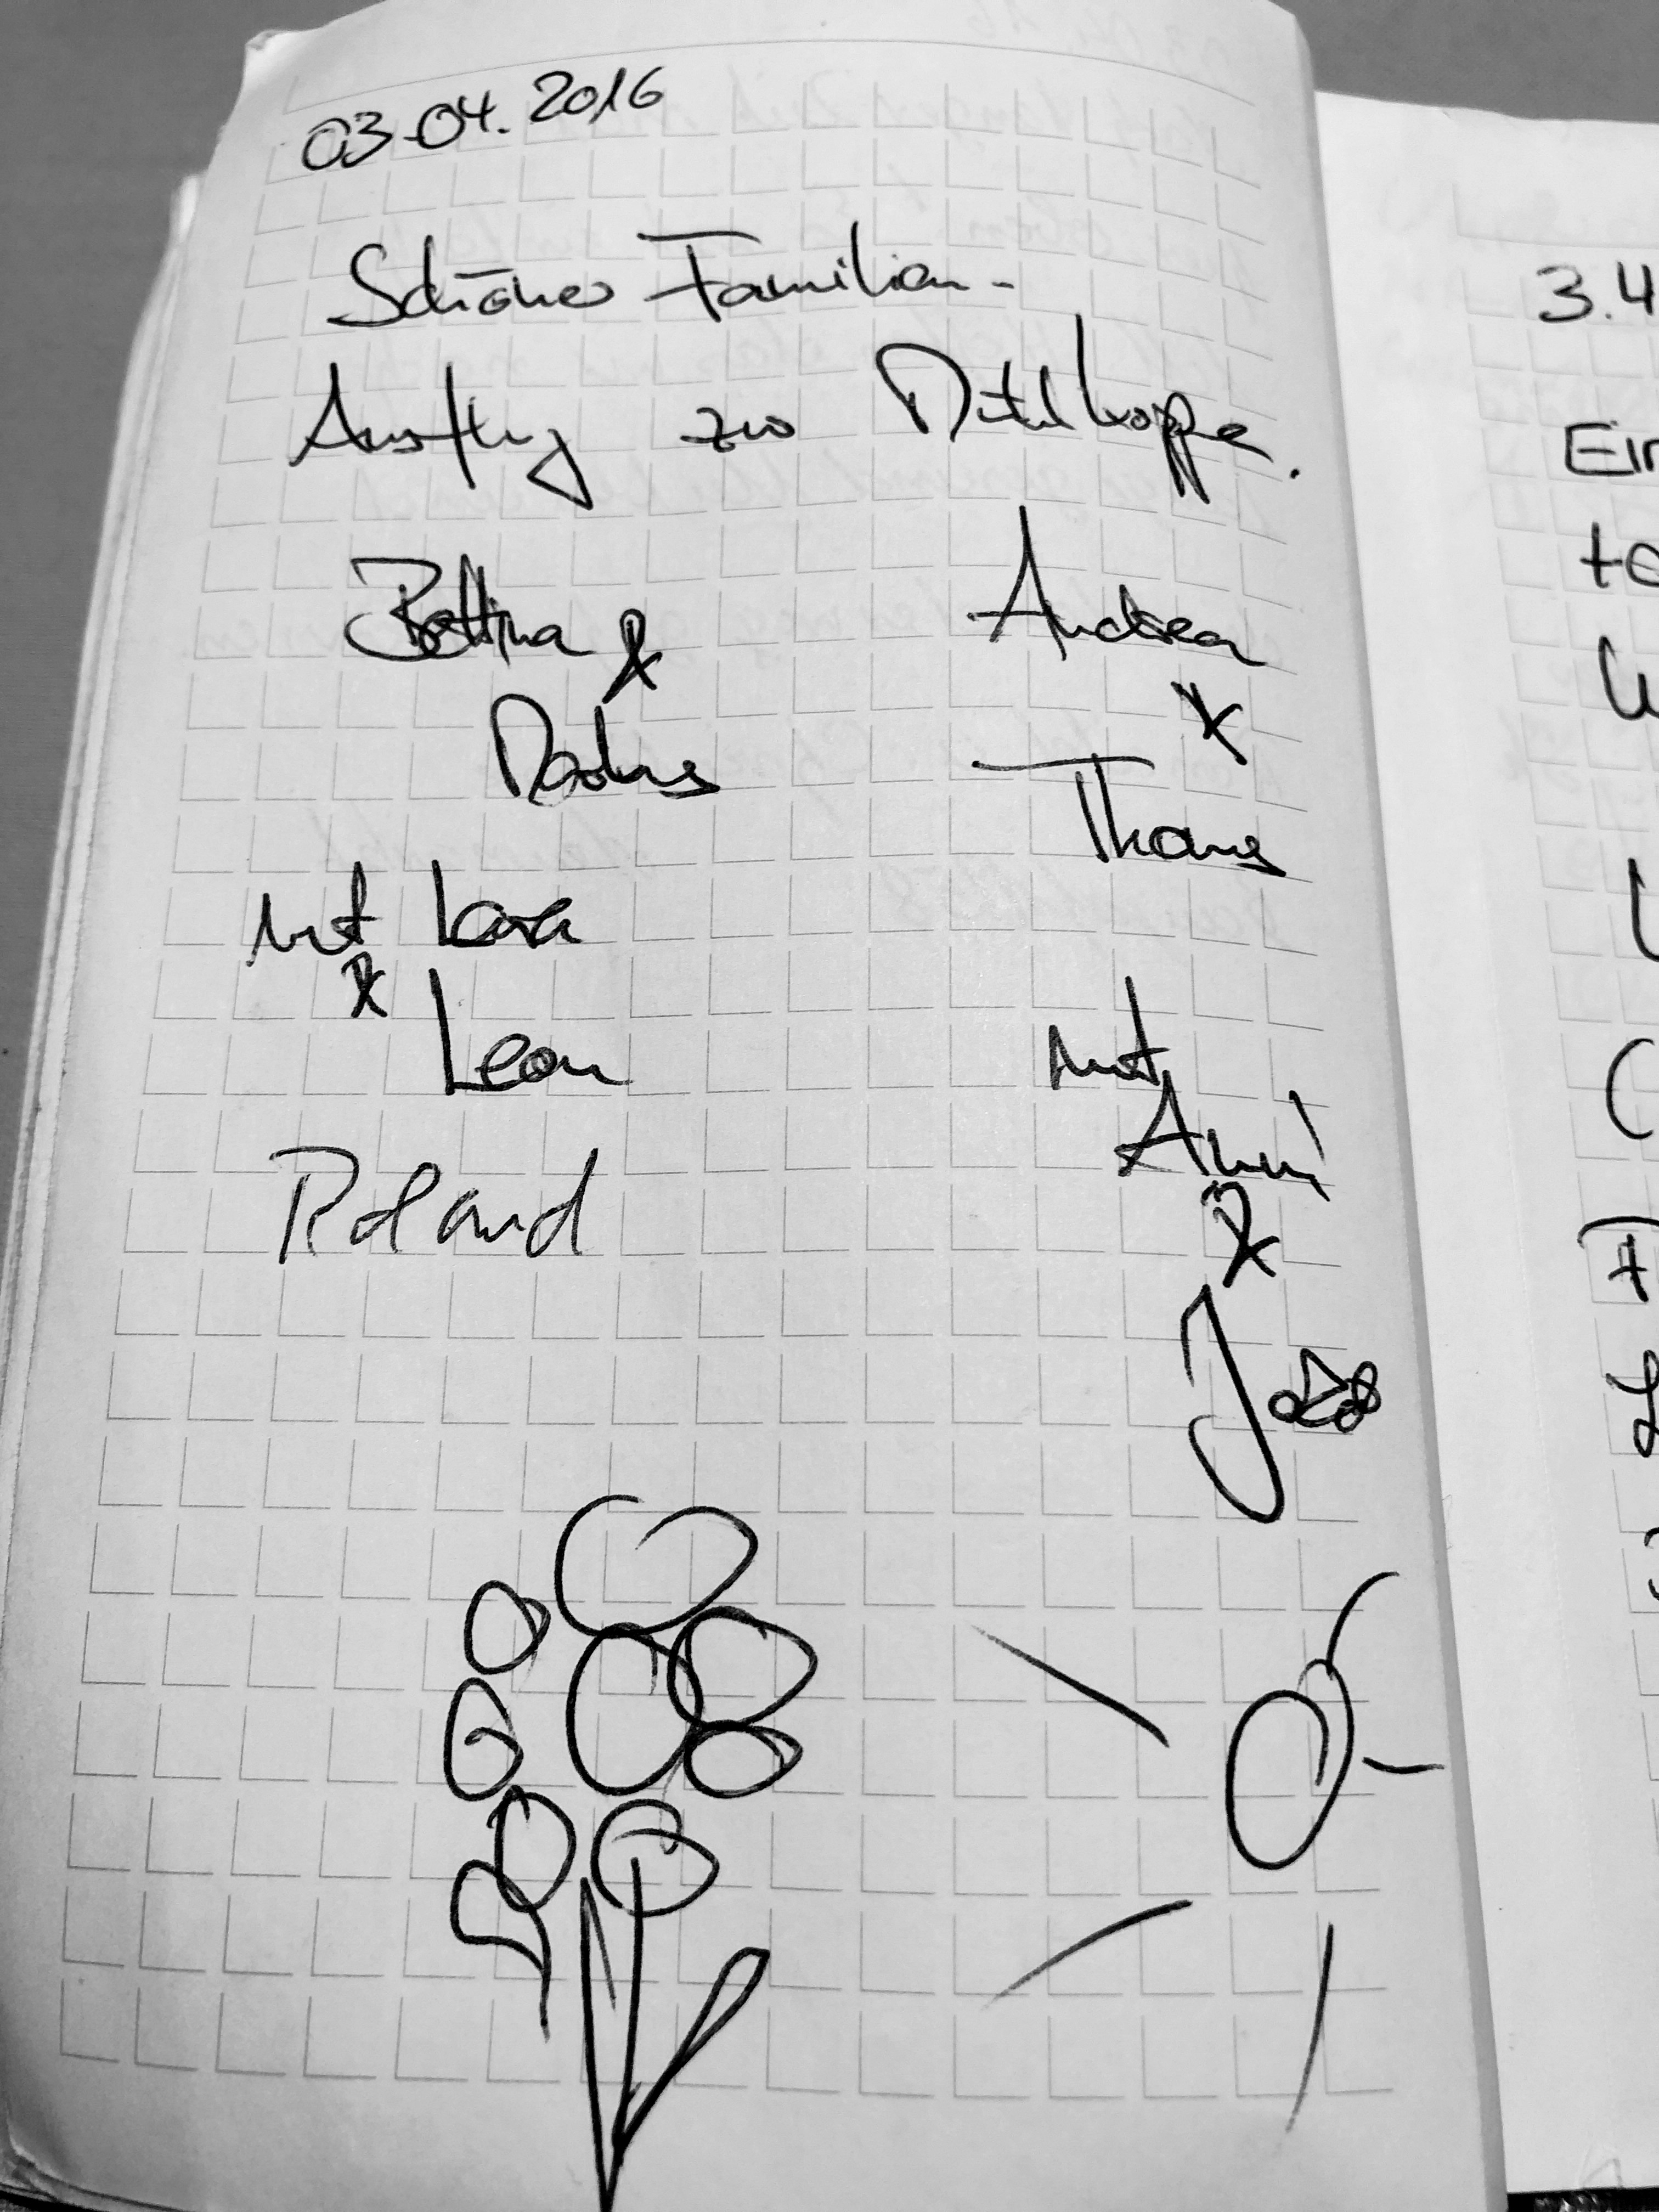 03.04.2016
Schöner Familien-
Ausflug zur Dütelkoppe.
Bettina &
Markus
mit Lara
& Leon
Roland
Andrea
&
Thomas
mit
Anni
&
Jakob
3.4
Ein